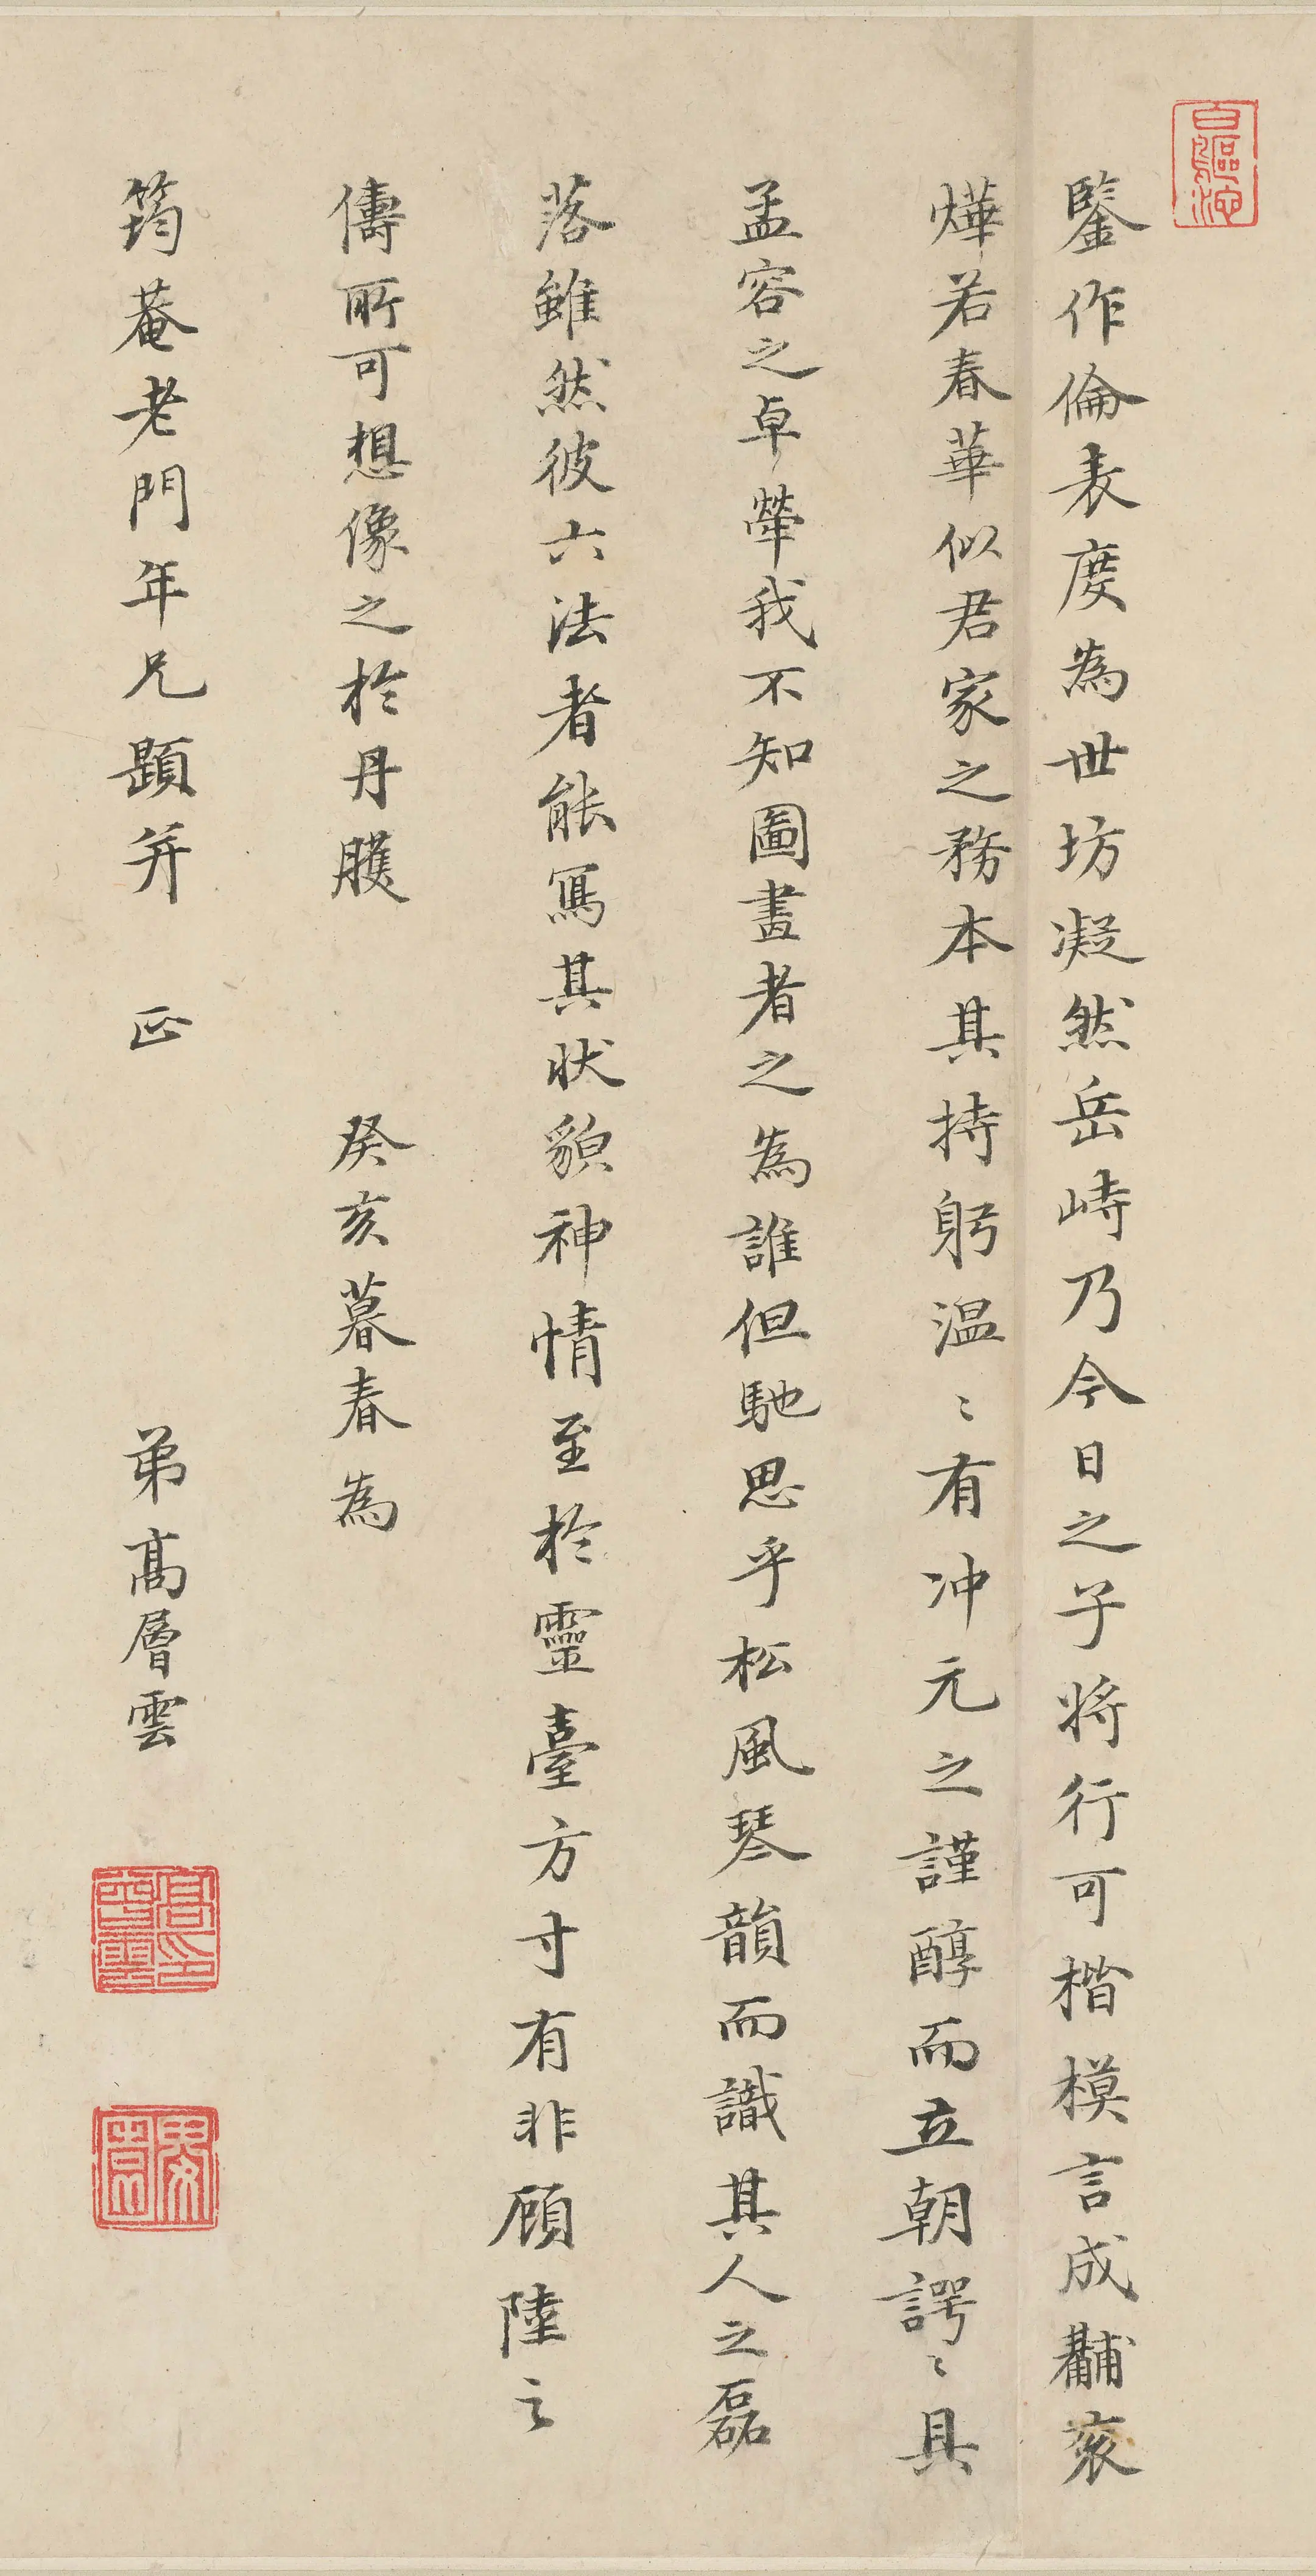 鑒作倫表度為世坊凝然岳峙乃今日之子將行可楷模言成黼袞
燁若春華似君家之務本其持躬温〻有冲元之謹醇而立朝諤〻具
孟容之卓犖我不知圖畫者之為誰但馳思乎松風琴韻而識其人之磊
落雖然彼六法者能寫其狀貌神情至於靈臺方寸有非顧陸之
儔所可想像之於丹臒 癸亥暮春為
筠菴老門年兄題并 正 弟高層雲